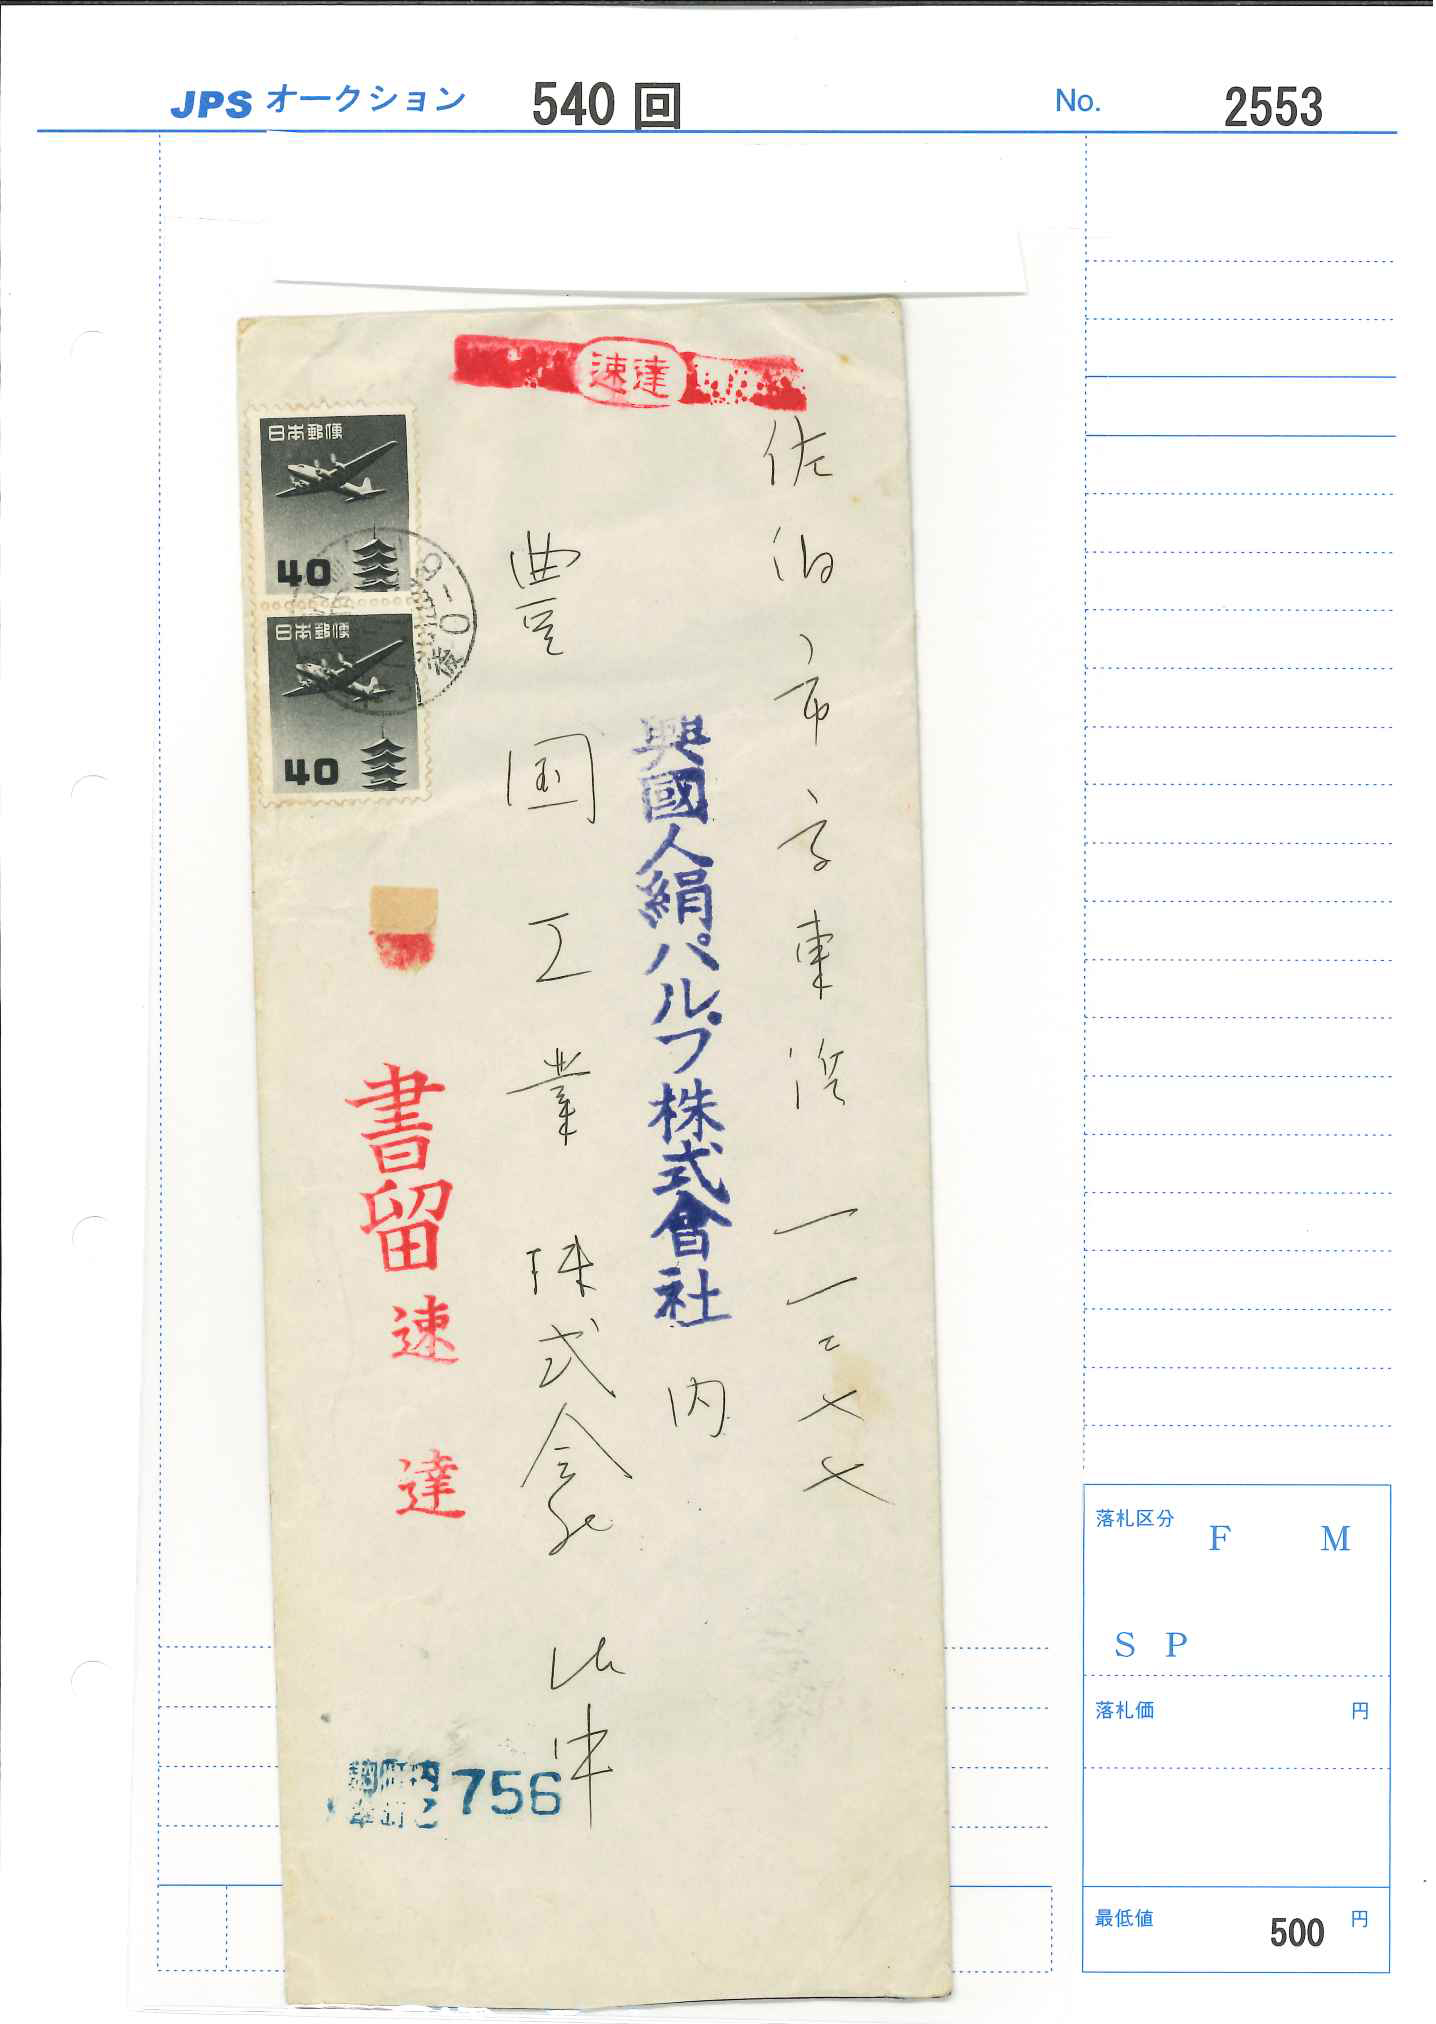 JPS オークション 540 回 No. 2553
速達
日本郵便
40
日本郵便
40
佐伯市字東浜一一二七七
興國人絹パルプ株式會社内
豊国工業株式会社
書留
速達
756
落札区分
F M
S P
落札価 円
最低値 500 円